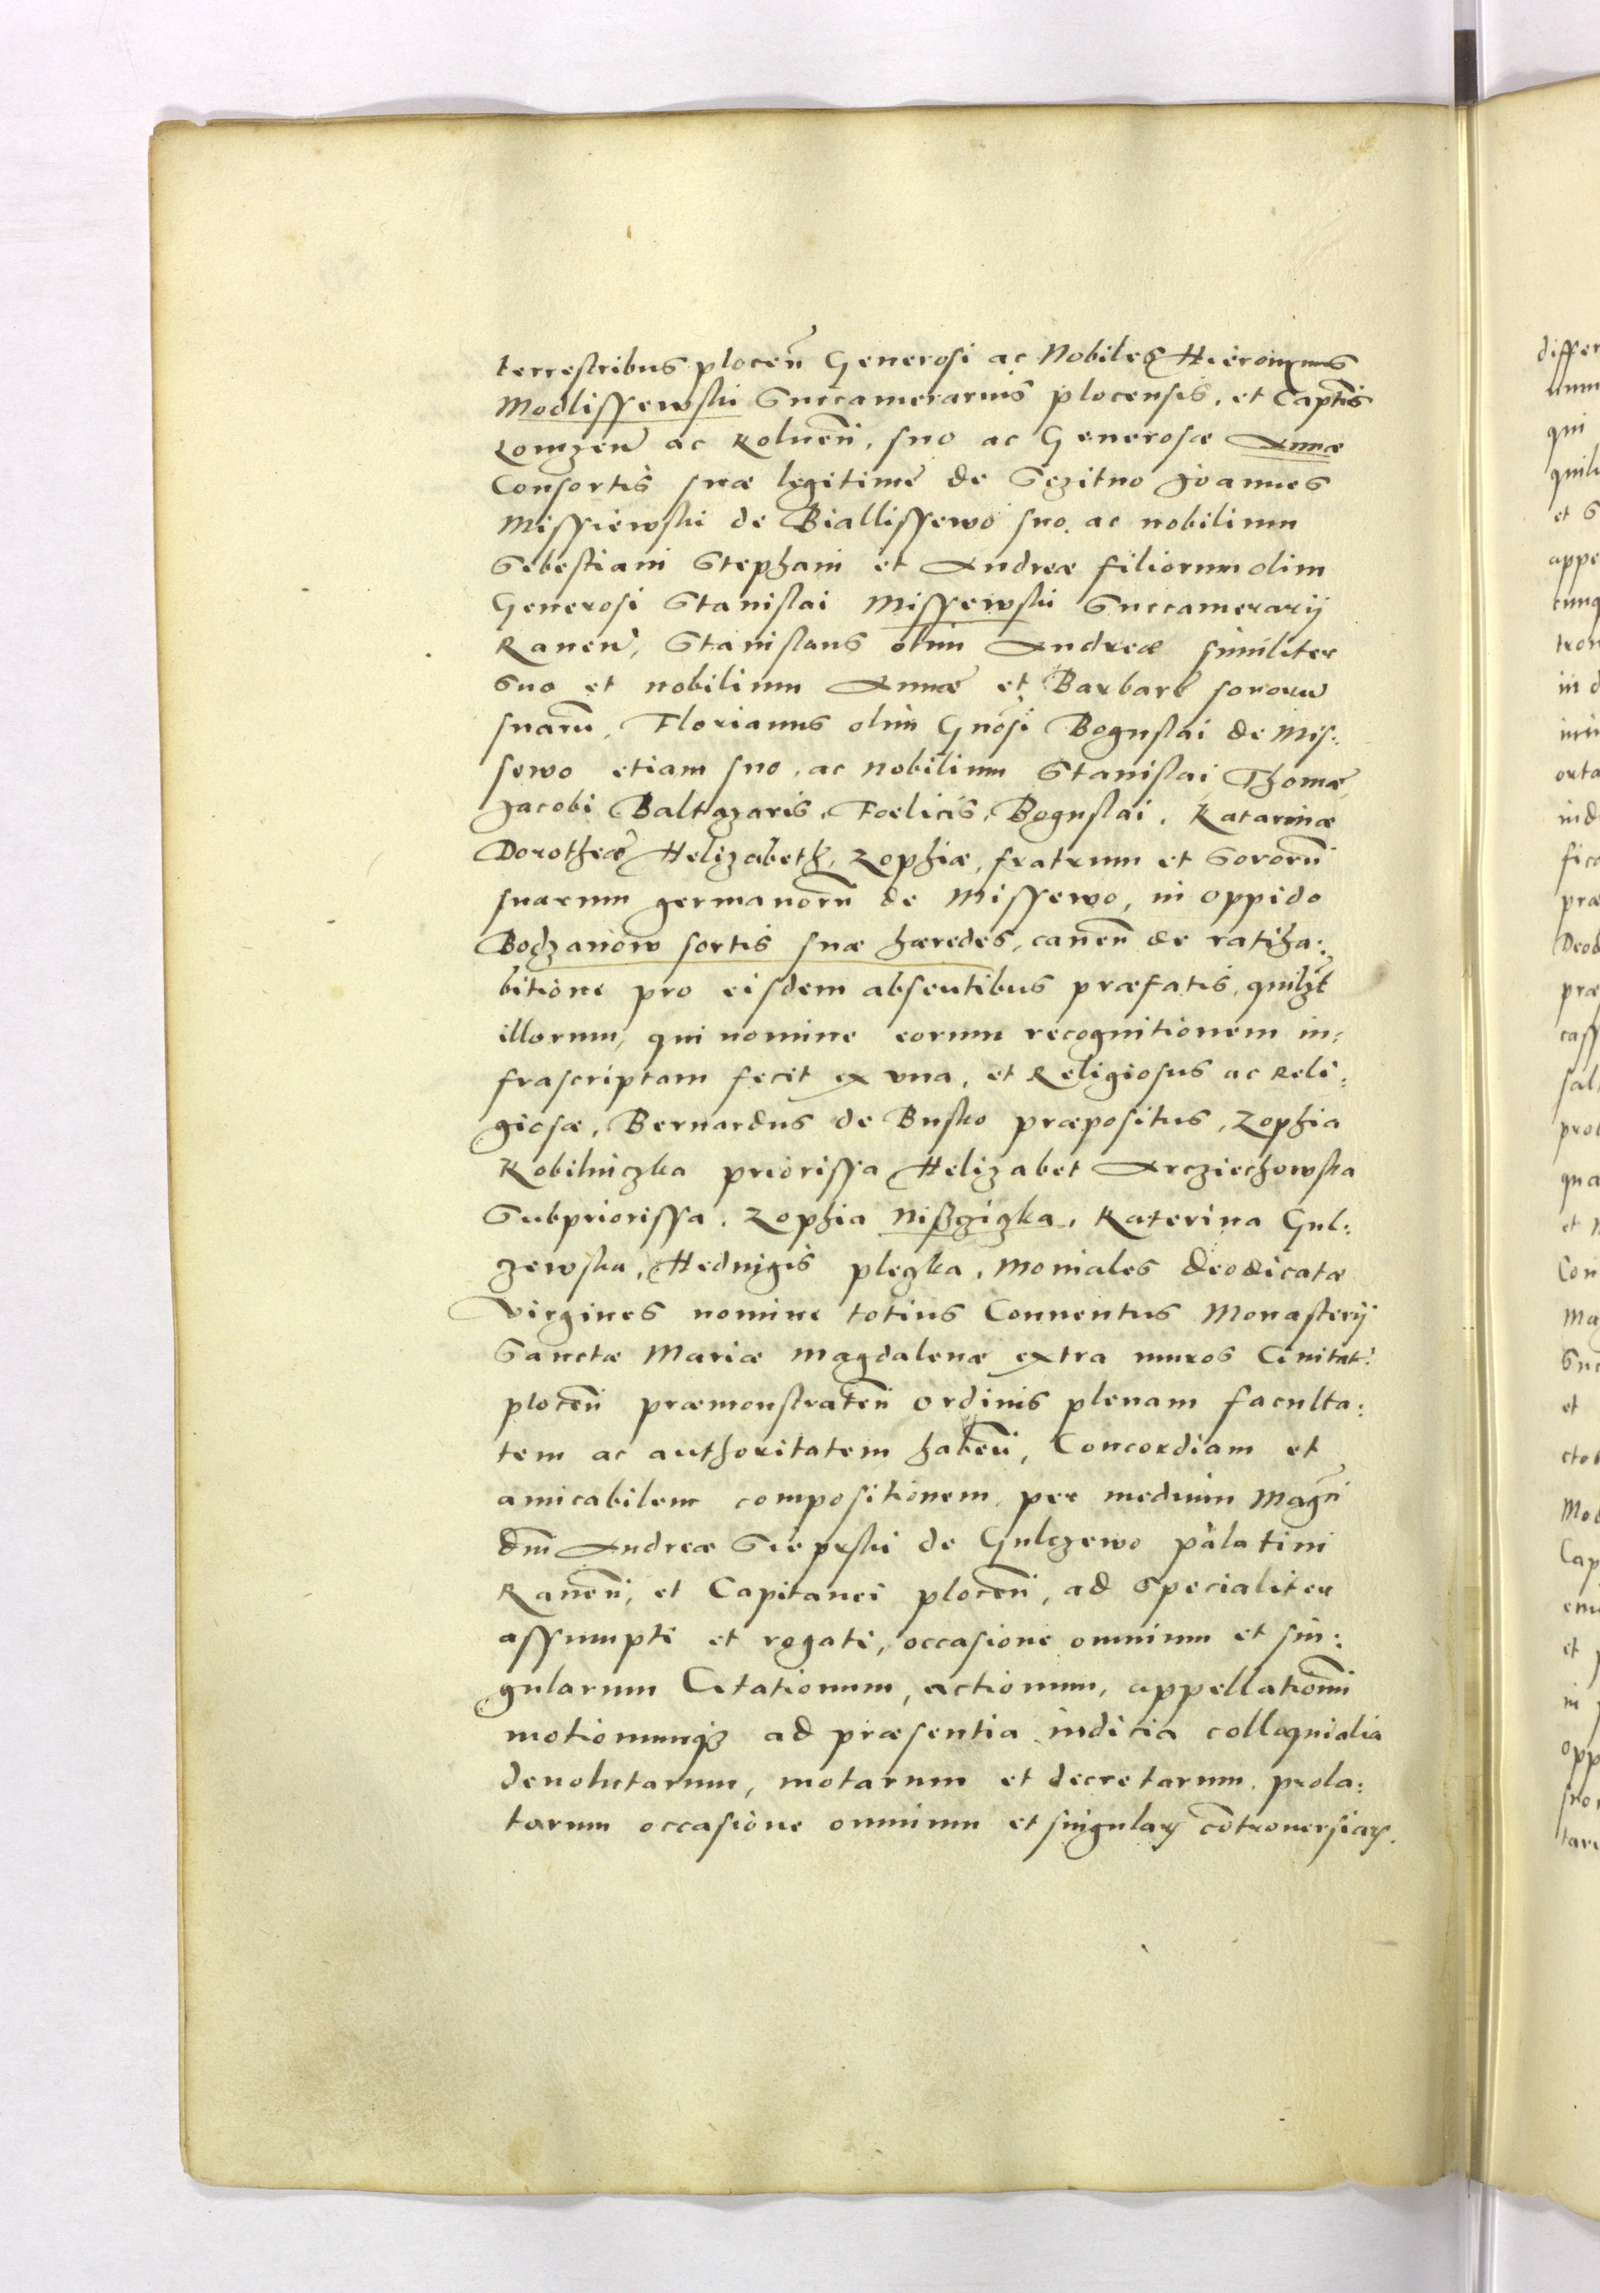 terrestribus plocen̄ Generosi ac Nobiles Hieronymus
Modlissewski Succamerarius plocensis, et Captūs
Lomzen̄ ac Kolnen̄, suo ac Generosæ Annæ
Consortis suæ legitime de Sezitno Joannes
Missiewski de Biallissewo suo ac nobilium
Sebestiani Stephani et Andreæ filiorum olim
Generosi Stanislai Missewski Succamerarij
Rauen̄, Stanislaus olim Andreæ similiter
suo et nobilium Annæ et Barbaræ sororū
suarū, Florianus olim Gnosi Boguslai de Mis:
sewo etiam suo, ac nobilium Stanislai Thomæ,
Jacobi Baltazaris, Foelicis, Boguslai, Katarinæ
Dorotheæ Helizabeth, Zophiæ, fratrum et Sororū
suarum germanorū de Missewo, in oppido
Bodzanow sortis suæ hæredes, cauen̄ de ratiha:
bitione pro eisdem absentibus præfatis, quilz̄t
illorum, qui nomine eorum recognitionem in:
frascriptam fecit ex vna, et Religiosus ac Reli:
giosæ, Bernardus de Busko præpositus, Zophia
Kobilniczka priorissa Helizabet Arcziechowska
Subpriorissa, Zophia Nißczizka, Katerina Gul:
zewska, Heduigis plezka, Moniales deodicatæ
virgines nomine totius Conuentus Monasterij
Sanctæ Mariæ Magdalenæ extra muros Ciuitat:
plocen̄ præmonstraten̄ ordinis plenam faculta:
tem ac authoritatem haben̄, Concordiam et
amicabilem compositionem per medium Magci
dni Andreæ Sieprski de Gulczewo palatini
Rauen̄, et Capitanei plocen̄, ad specialiter
assumpti et rogati, occasione omnium et sin:
gularum Citationum, actionum, appellationū
motionumqȝ ad præsentia iudicia colloquialia
deuolutarum, motarum et decretarum prola:
tarum occasione omnium et singulaꝝ cōtrouersiaꝝ.